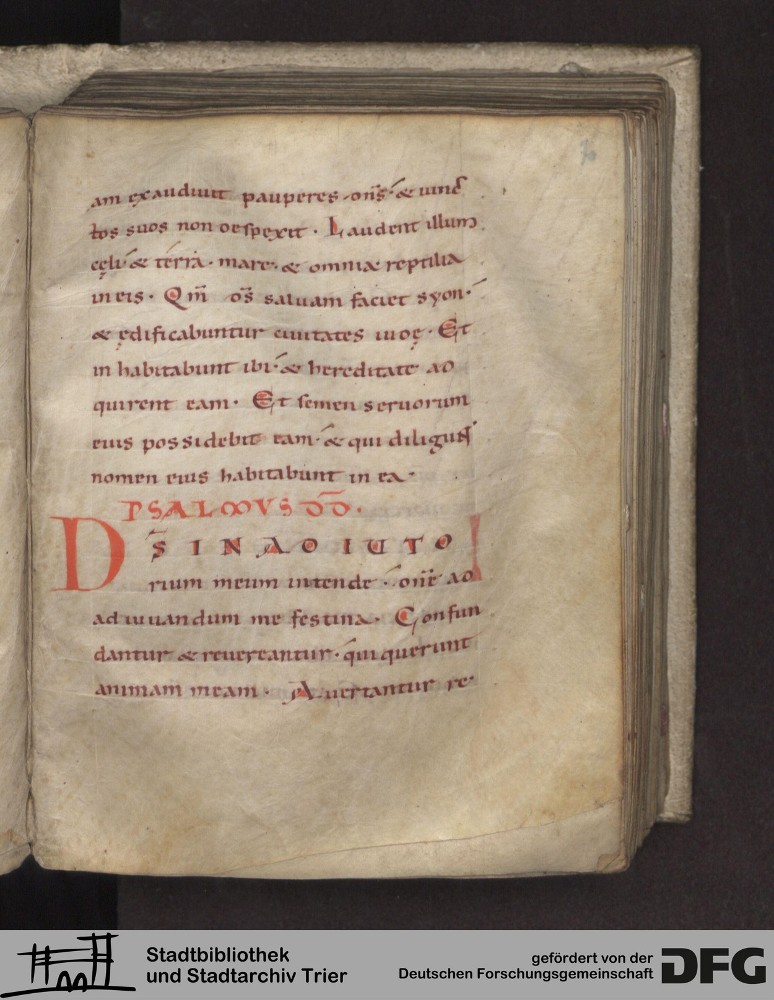 76
am exaudiuit pauperes dn̄s· & uinc̄
tos suos non despexit· Laudent illum
cęli & terra· mare· & omnia reptilia
in eis· Qm̄ d̄s saluam faciet syon·
& ędificabuntur ciuitates iudę· Et
inhabitabunt ibi· & hereditate ad
quirent eam· Et semen seruorum
eius possidebit eam· & qui diligunt
nomen eius habitabunt in ea·
PSALMVS D̄D̄·
D̄S IN ADIUTO
rium meum intende· dn̄e ad
adiuuandum me festina· Confun
dantur & reuereantur· qui querunt
animam meam· Auertantur re
Stadtbibliothek
und Stadtarchiv Trier
gefördert von der
Deutschen Forschungsgemeinschaft
DFG